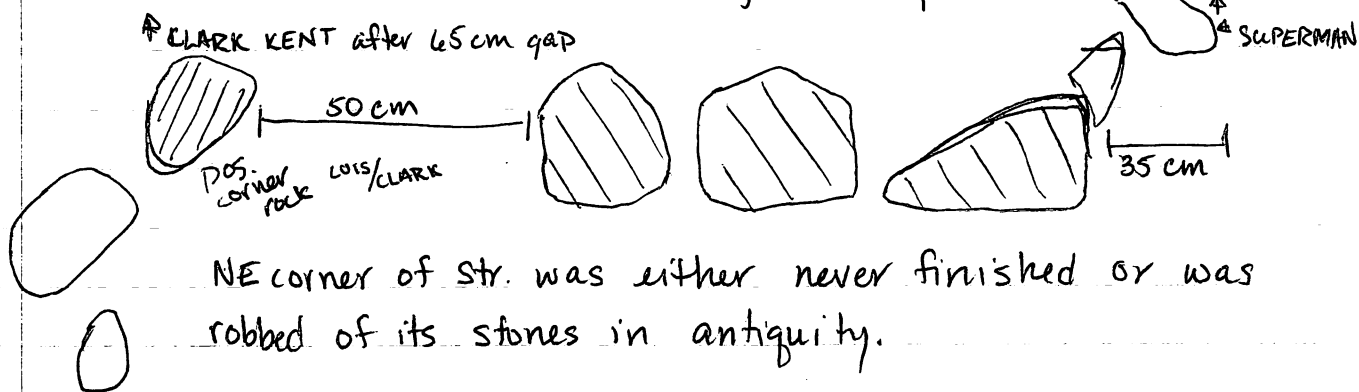 CLARK KENT after 65 cm gap
SUPERMAN
50 cm
35 cm
Pos.
corner
rock
LOIS/CLARK
NE corner of Str. was either never finished or was
robbed of its stones in antiquity.